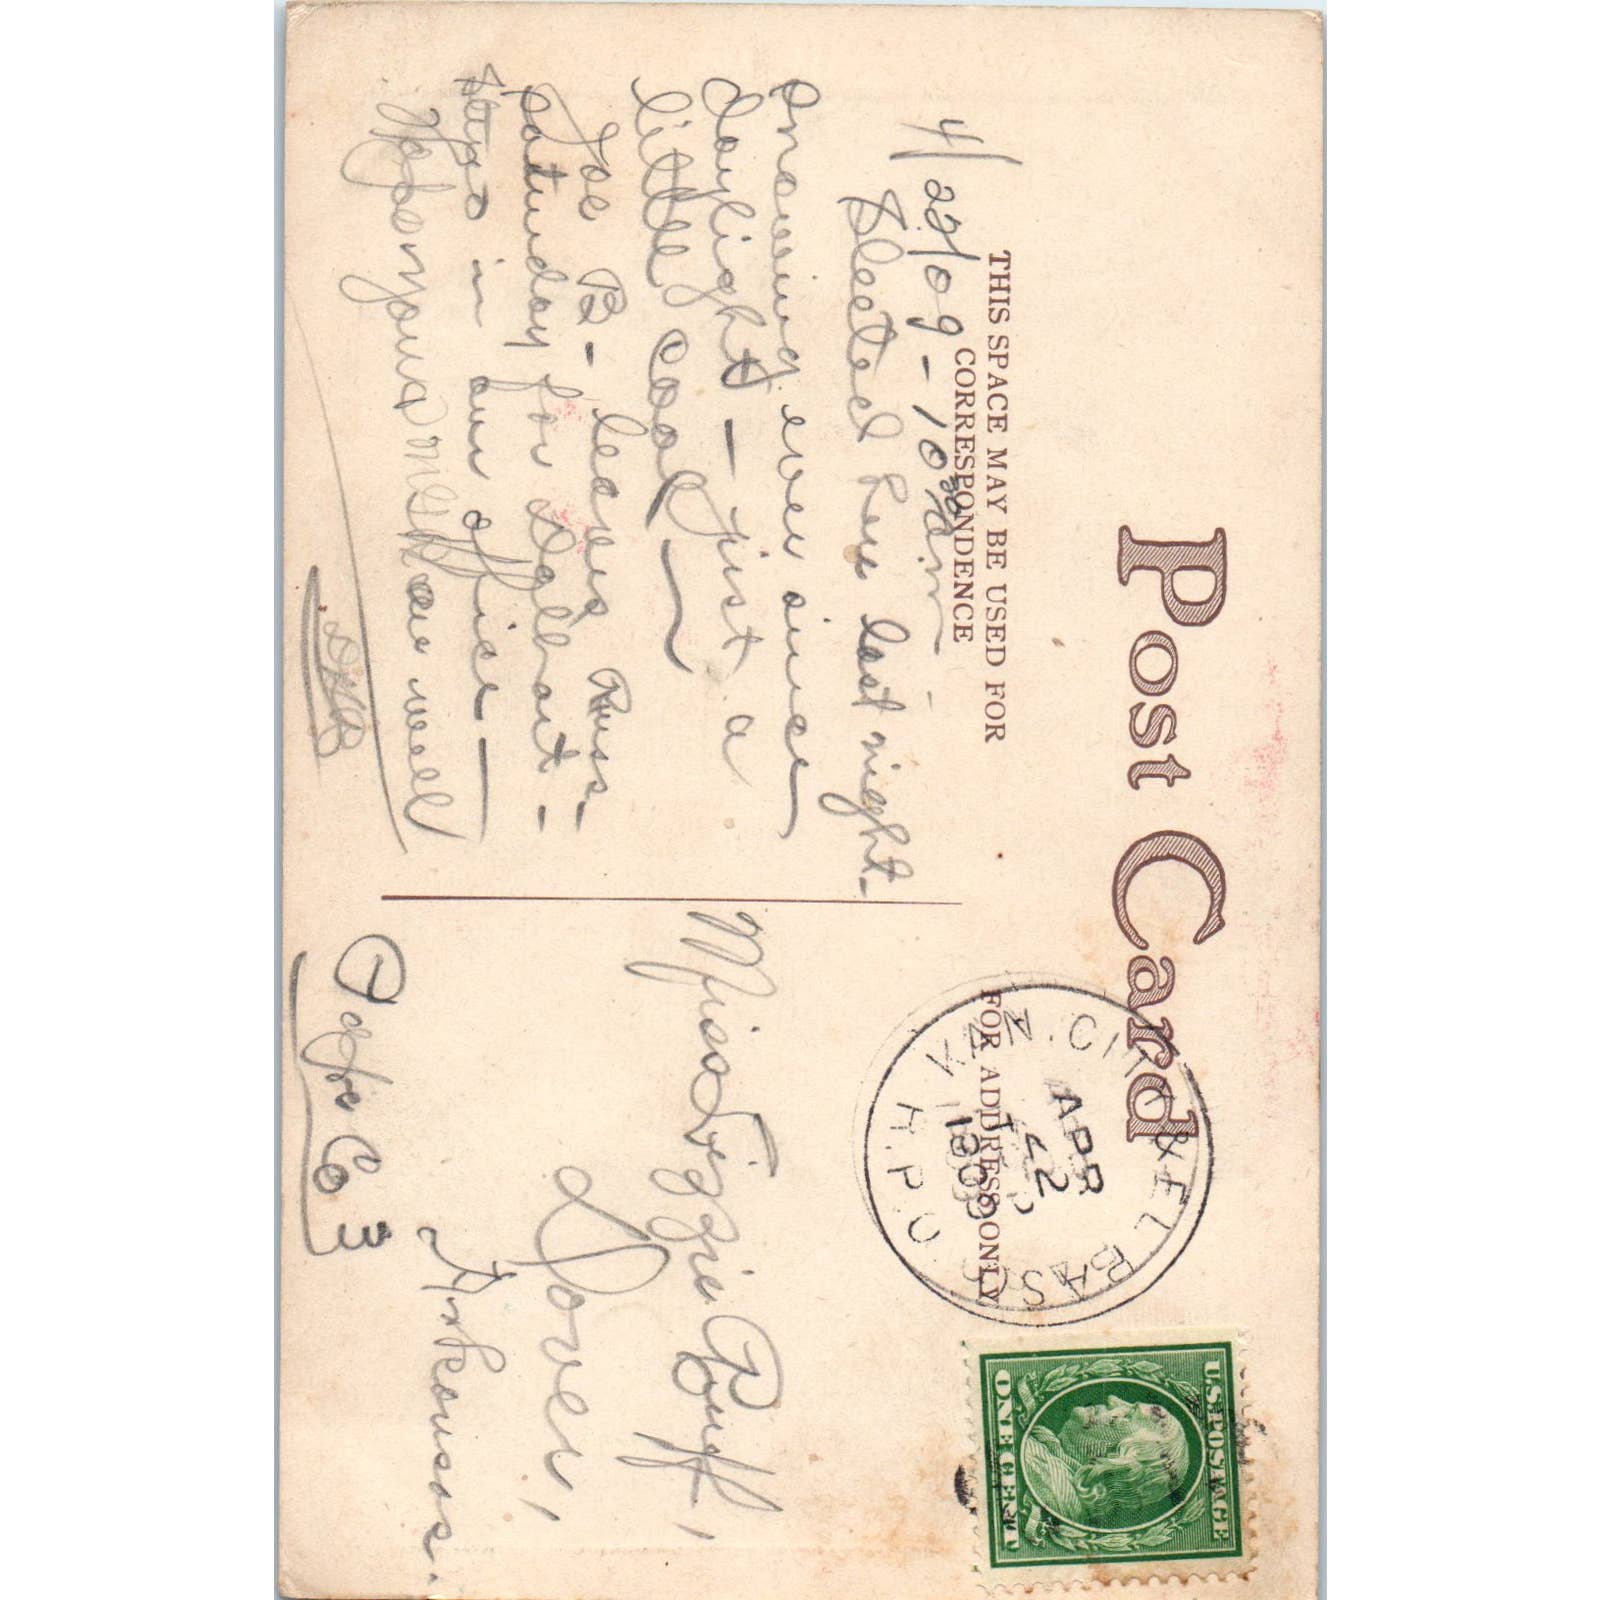 Post Card
THIS SPACE MAY BE USED FOR
CORRESPONDENCE
FOR ADDRESS ONLY
KAN. CITY & EL PASO
APR
22
1909
R.P.O.
U.S. POSTAGE
ONE CENT
4/22/09 - 10
Sleeted here last night -
Snowing ever since
daylight - just a
little cool
Joe B - leaves Russ -
Saturday for Dalhart -
Stays in our office -
Hope you are well
Miss Lizzie Pouff,
Dover,
Arkansas.
Pope Co
3